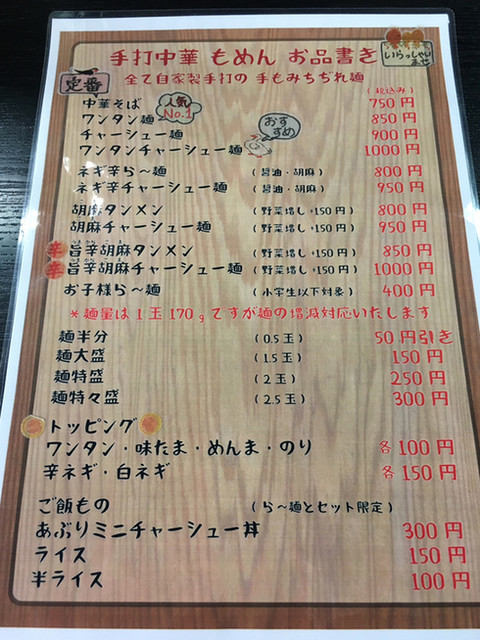 手打中華 もめん お品書き
いらっしゃいませ
定番
全て自家製手打の 手もみちぢれ麺
(税込み)
中華そば 750円
人気No.1
ワンタン麺 850円
チャーシュー麺 900円
おすすめ
ワンタンチャーシュー麺 1000円
ネギ辛ら〜麺 (醤油・胡麻) 800円
ネギ辛チャーシュー麺 (醤油・胡麻) 950円
胡麻タンメン (野菜増し+150円) 800円
胡麻チャーシュー麺 (野菜増し+150円) 950円
辛 旨辛胡麻タンメン (野菜増し+150円) 850円
辛 旨辛胡麻チャーシュー麺 (野菜増し+150円) 1000円
お子様ら〜麺 (小学生以下対象) 400円
*麺量は1玉170gですが麺の増減対応いたします
麺半分 (0.5玉) 50円引き
麺大盛 (1.5玉) 150円
麺特盛 (2玉) 250円
麺特々盛 (2.5玉) 300円
トッピング
ワンタン・味たま・めんま・のり 各100円
辛ネギ・白ネギ 各150円
ご飯もの (ら〜麺とセット限定)
あぶりミニチャーシュー丼 300円
ライス 150円
半ライス 100円